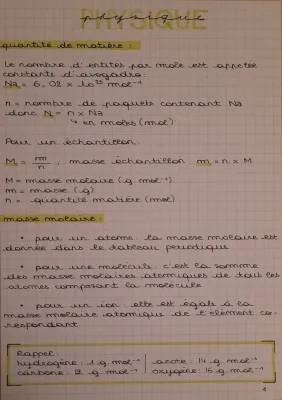 PHYSIQUE
physique
quantité de matière :
Le nombre d'entités par mole est appelée
constante d'avogadro :
Na = 6,02 × 10²³ mol⁻¹
n = nombre de paquets contenant Na
donc N = n × Na
↳ en moles (mol)
Pour un échantillon
M = m/n ; masse échantillon m = n × M
M = masse molaire (g.mol⁻¹)
m = masse (g)
n = quantité matière (mol)
masse molaire :
• pour un atome la masse molaire est
donnée dans le tableau periodique
• pour une molécule : c'est la somme
des masse molaires atomiques de tout les
atomes composant la molécule
• pour un ion : elle est égale à la
masse molaire atomique de l'élément co-
respondant
Rappel :
hydrogène : 1 g.mol⁻¹ | azote : 14 g.mol⁻¹
carbone : 12 g.mol⁻¹ | oxygène : 16 g.mol⁻¹